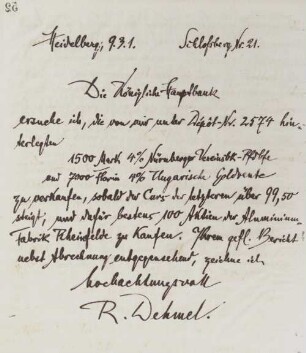 26
Heidelberg, 9.3.1. Schloßberg Nr. 21.
Die Königliche Hauptbank
ersuche ich, die von mir unter Depôt-Nr. 2574 hin-
terlegten
1500 Mark 4% Nürnberger Vereinsbk-Pfdbfe
und 7000 Florin 4% Ungarische Goldrente
zu verkaufen, sobald der Curs der letzteren über 99,50
steigt, und dafür bestens 100 Aktien der Aluminium-
fabrik Rheinfelde zu kaufen. Ihrem gefl. Bericht
nebst Abrechnung entgegensehend, zeichne ich
hochachtungsvoll
R. Dehmel.